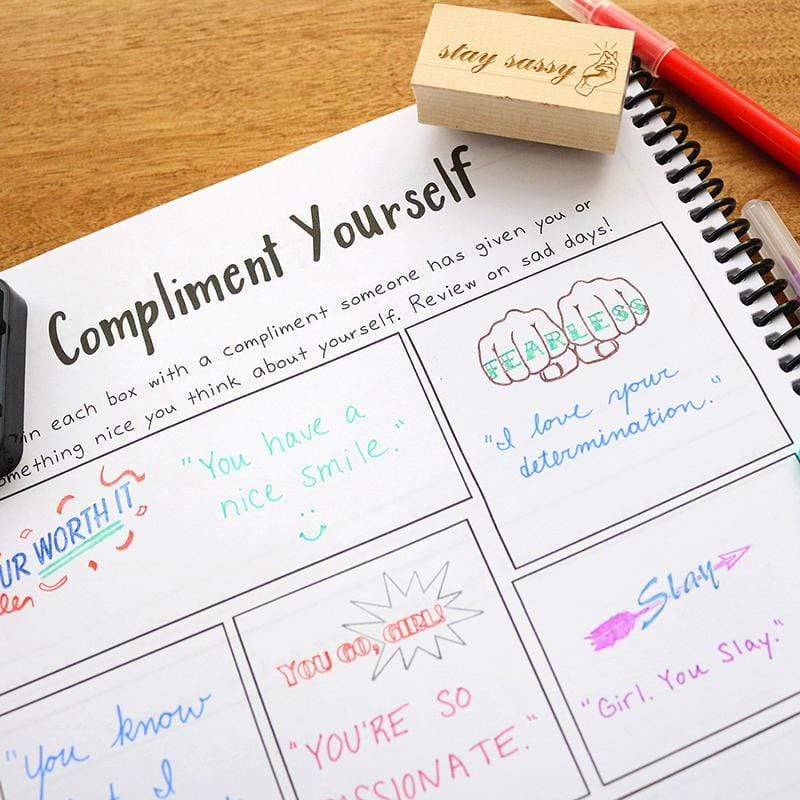 stay sassy
Compliment Yourself
in each box with a compliment someone has given you or
something nice you think about yourself. Review on sad days!
FEARLESS
"I love your
determination."
"You have a
nice smile."
UR WORTH IT
Slay
"Girl. You Slay."
YOU GO, GIRL!
"YOU'RE SO
"You know
I